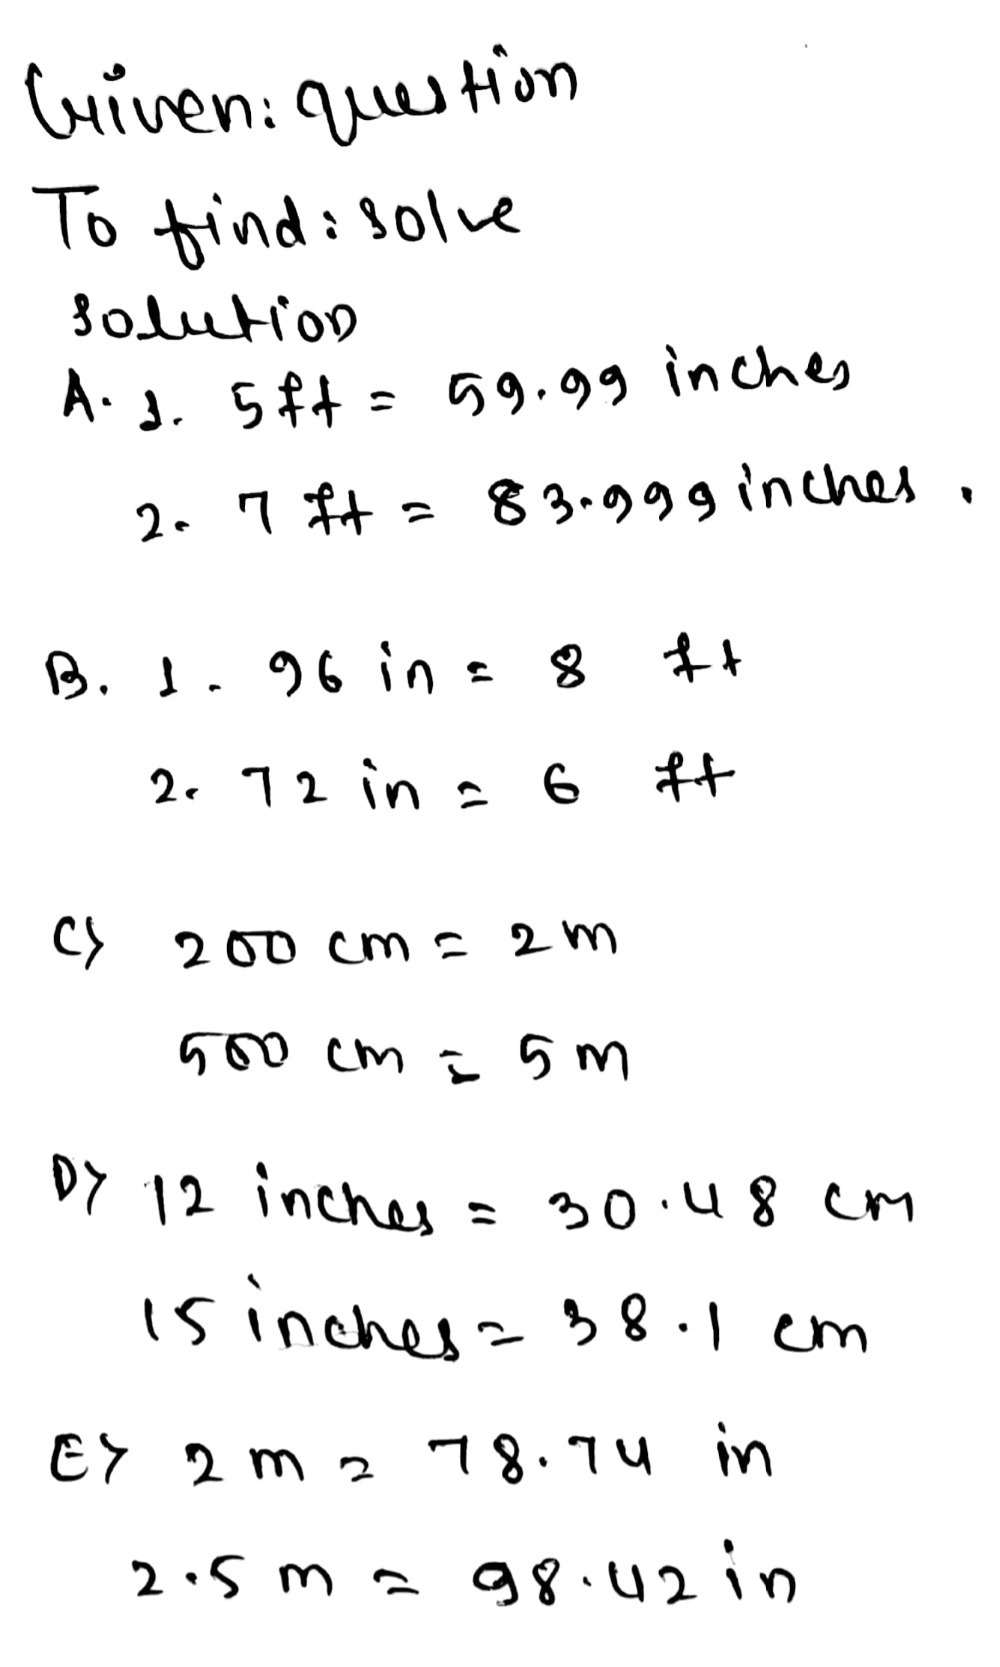 Given: question
To find: solve
solution
A. 1. 5 ft = 59.99 inches
2. 7 ft = 83.999 inches.
B. 1. 96 in = 8 ft
2. 72 in = 6 ft
C) 200 cm = 2 m
500 cm = 5 m
D) 12 inches = 30.48 cm
15 inches = 38.1 cm
E) 2 m = 78.74 in
2.5 m = 98.42 in